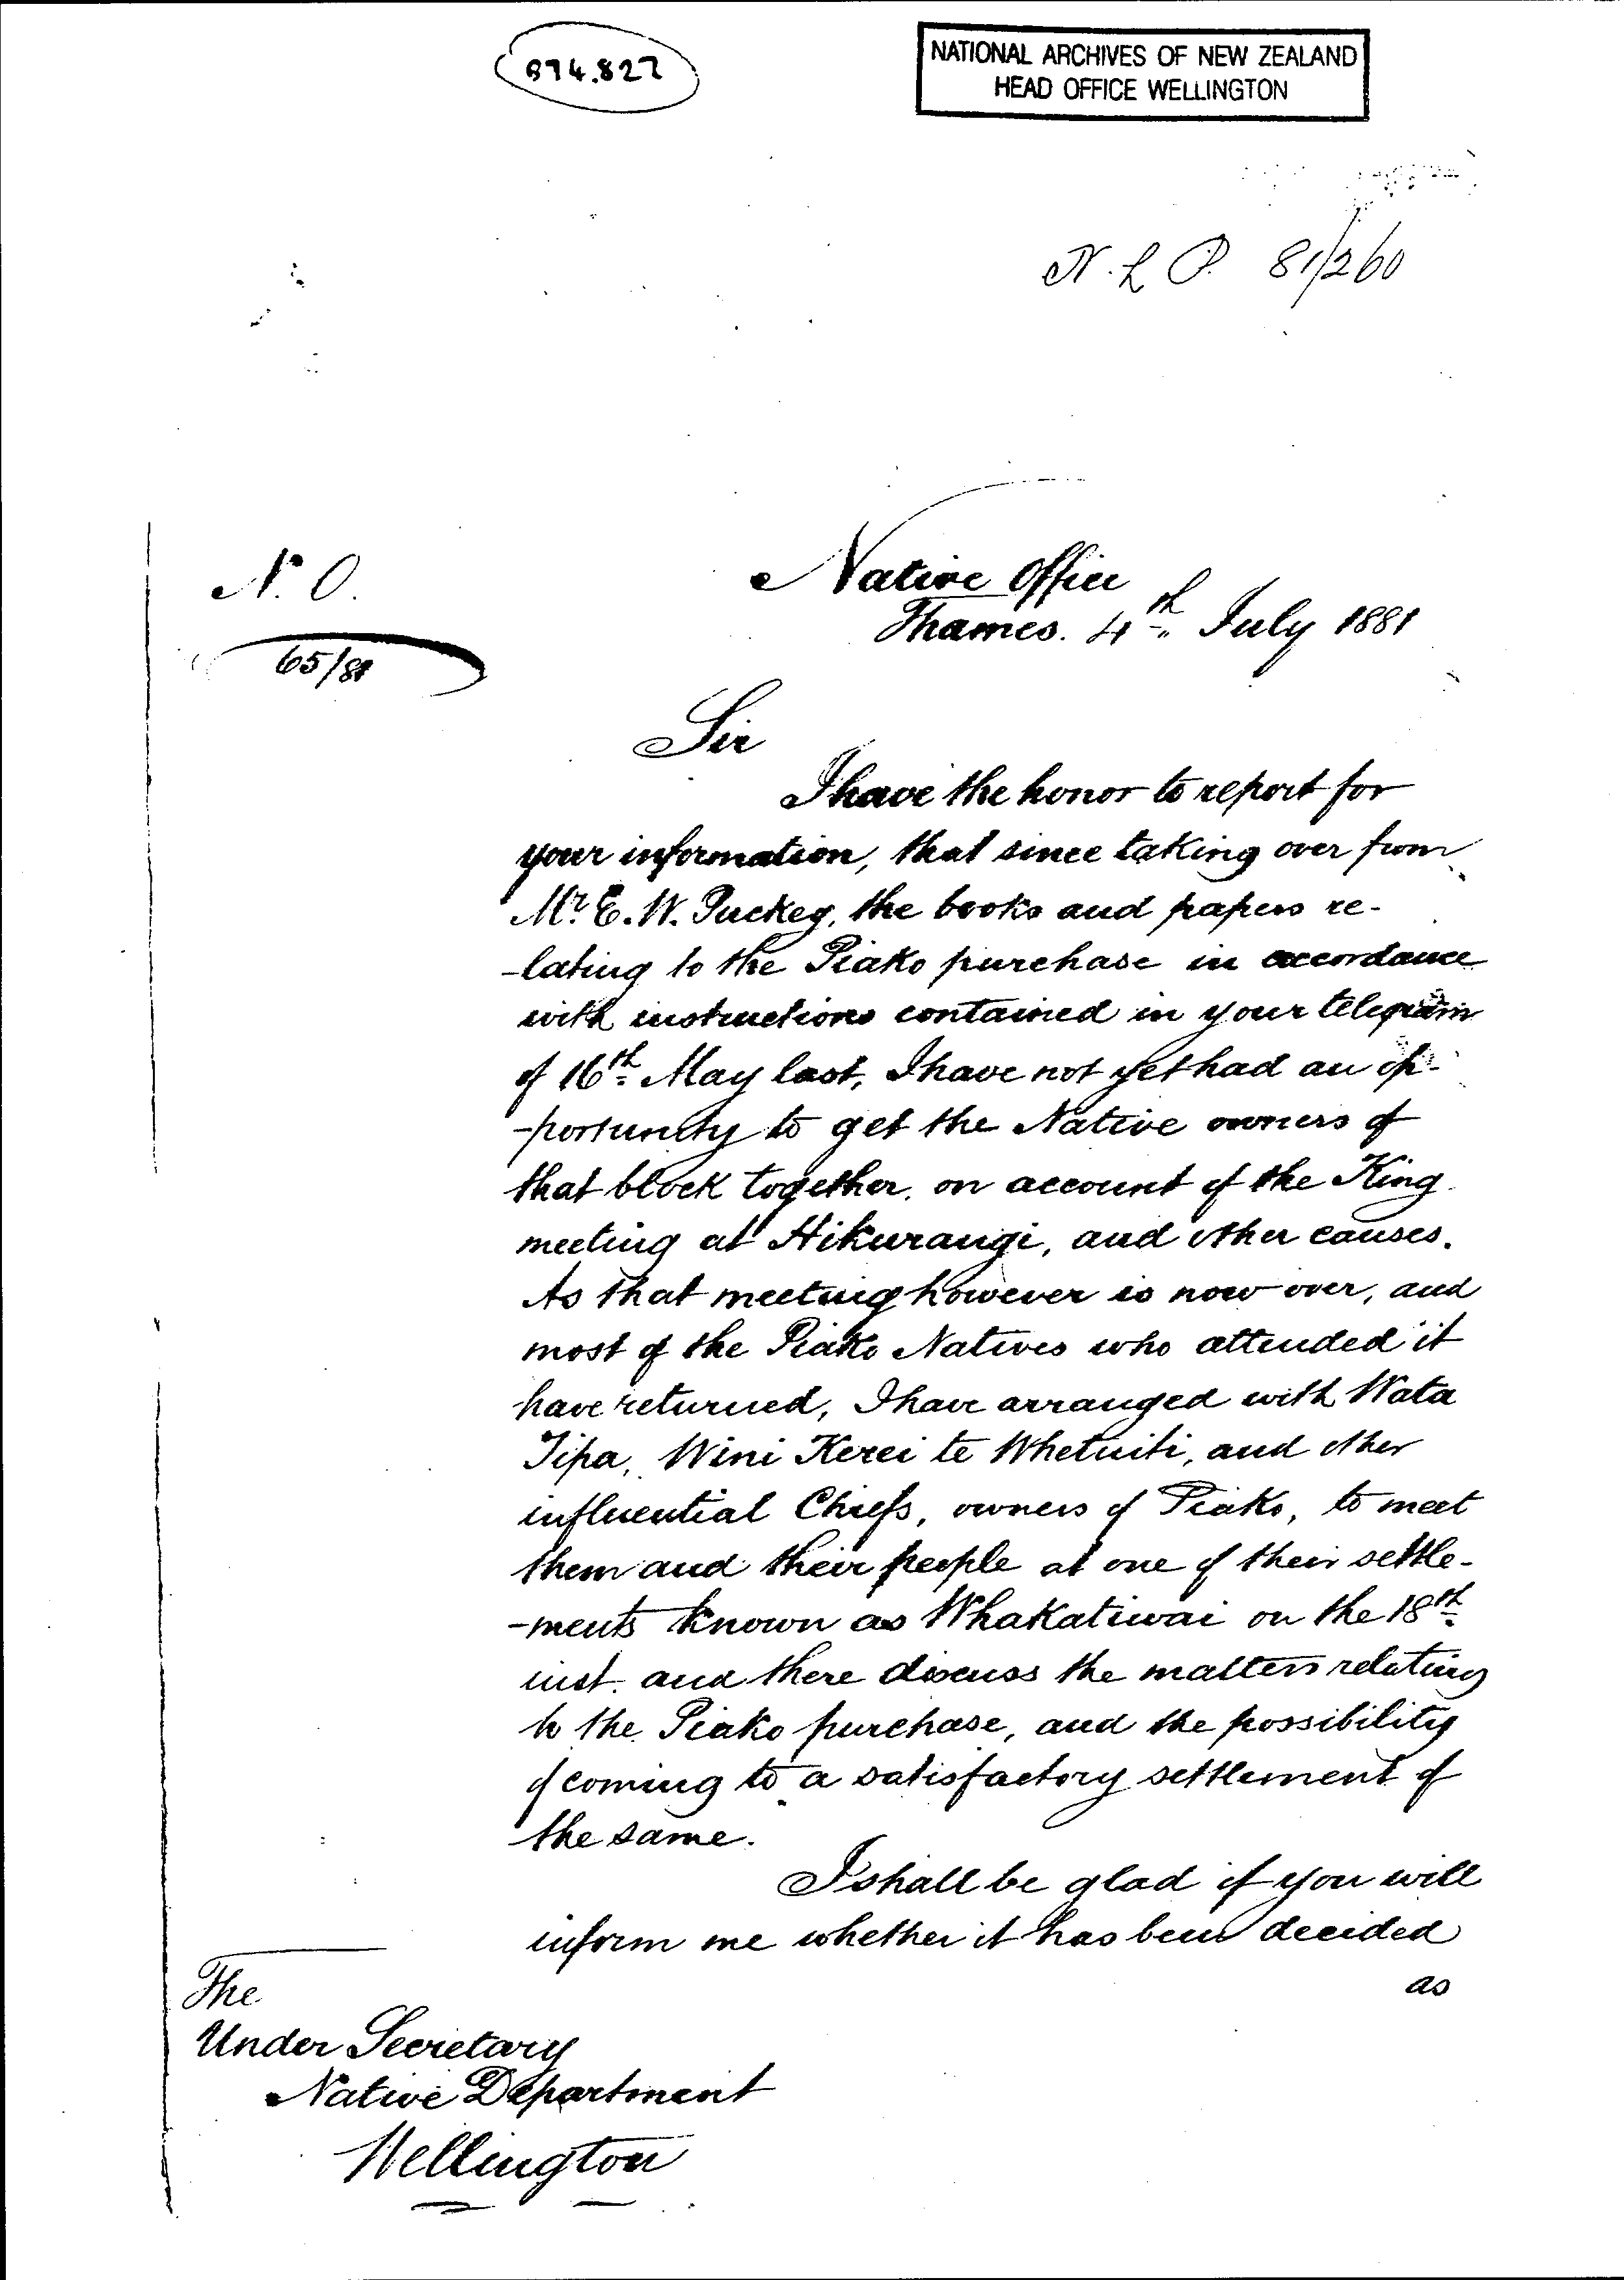 874.827
NATIONAL ARCHIVES OF NEW ZEALAND
HEAD OFFICE WELLINGTON
N. L P. 81/260
N. O.
65/81
Native Office
Thames. 4th July 1881
Sir
I have the honor to report for
your information, that since taking over from
Mr. E. W. Puckey, the books and papers re-
-lating to the Piako purchase in accordance
with instructions contained in your telegram
of 16th May last, I have not yet had an op-
-portunity to get the Native owners of
that block together, on account of the King
meeting at Hikurangi, and other causes.
As that meeting however is now over, and
most of the Piako Natives who attended it
have returned, I have arranged with Wata
Tipa, Wini Kerei te Whetuiti, and other
influential Chiefs, owners of Piako, to meet
them and their people at one of their settle-
-ments known as Whakatiwai on the 18th
inst. and there discuss the matters relating
to the Piako purchase, and the possibility
of coming to a satisfactory settlement of
the same.
I shall be glad if you will
inform me whether it has been decided
as
The
Under Secretary
Native Department
Wellington